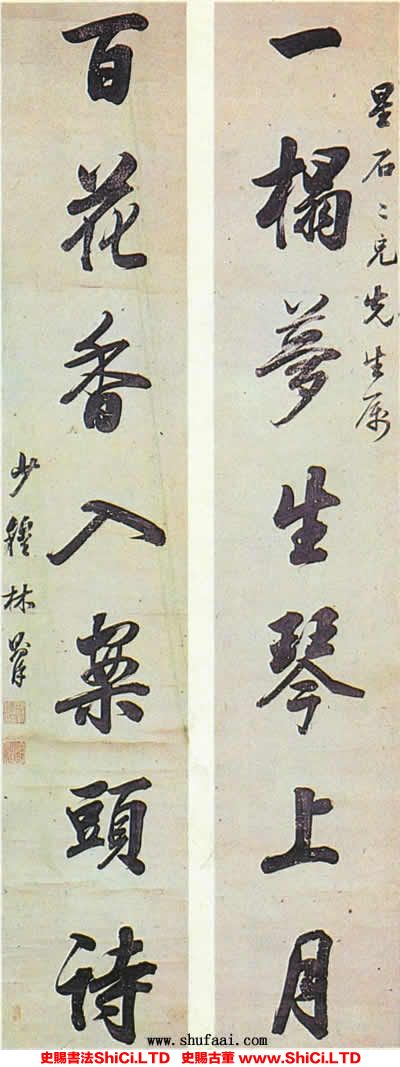 星石二兄先生属
一榻夢生琴上月
百花香入案頭詩
少鐘林
www.shufaai.com
史賜書法ShiCi.LTD 史賜古董 www.ShiCi.LTD